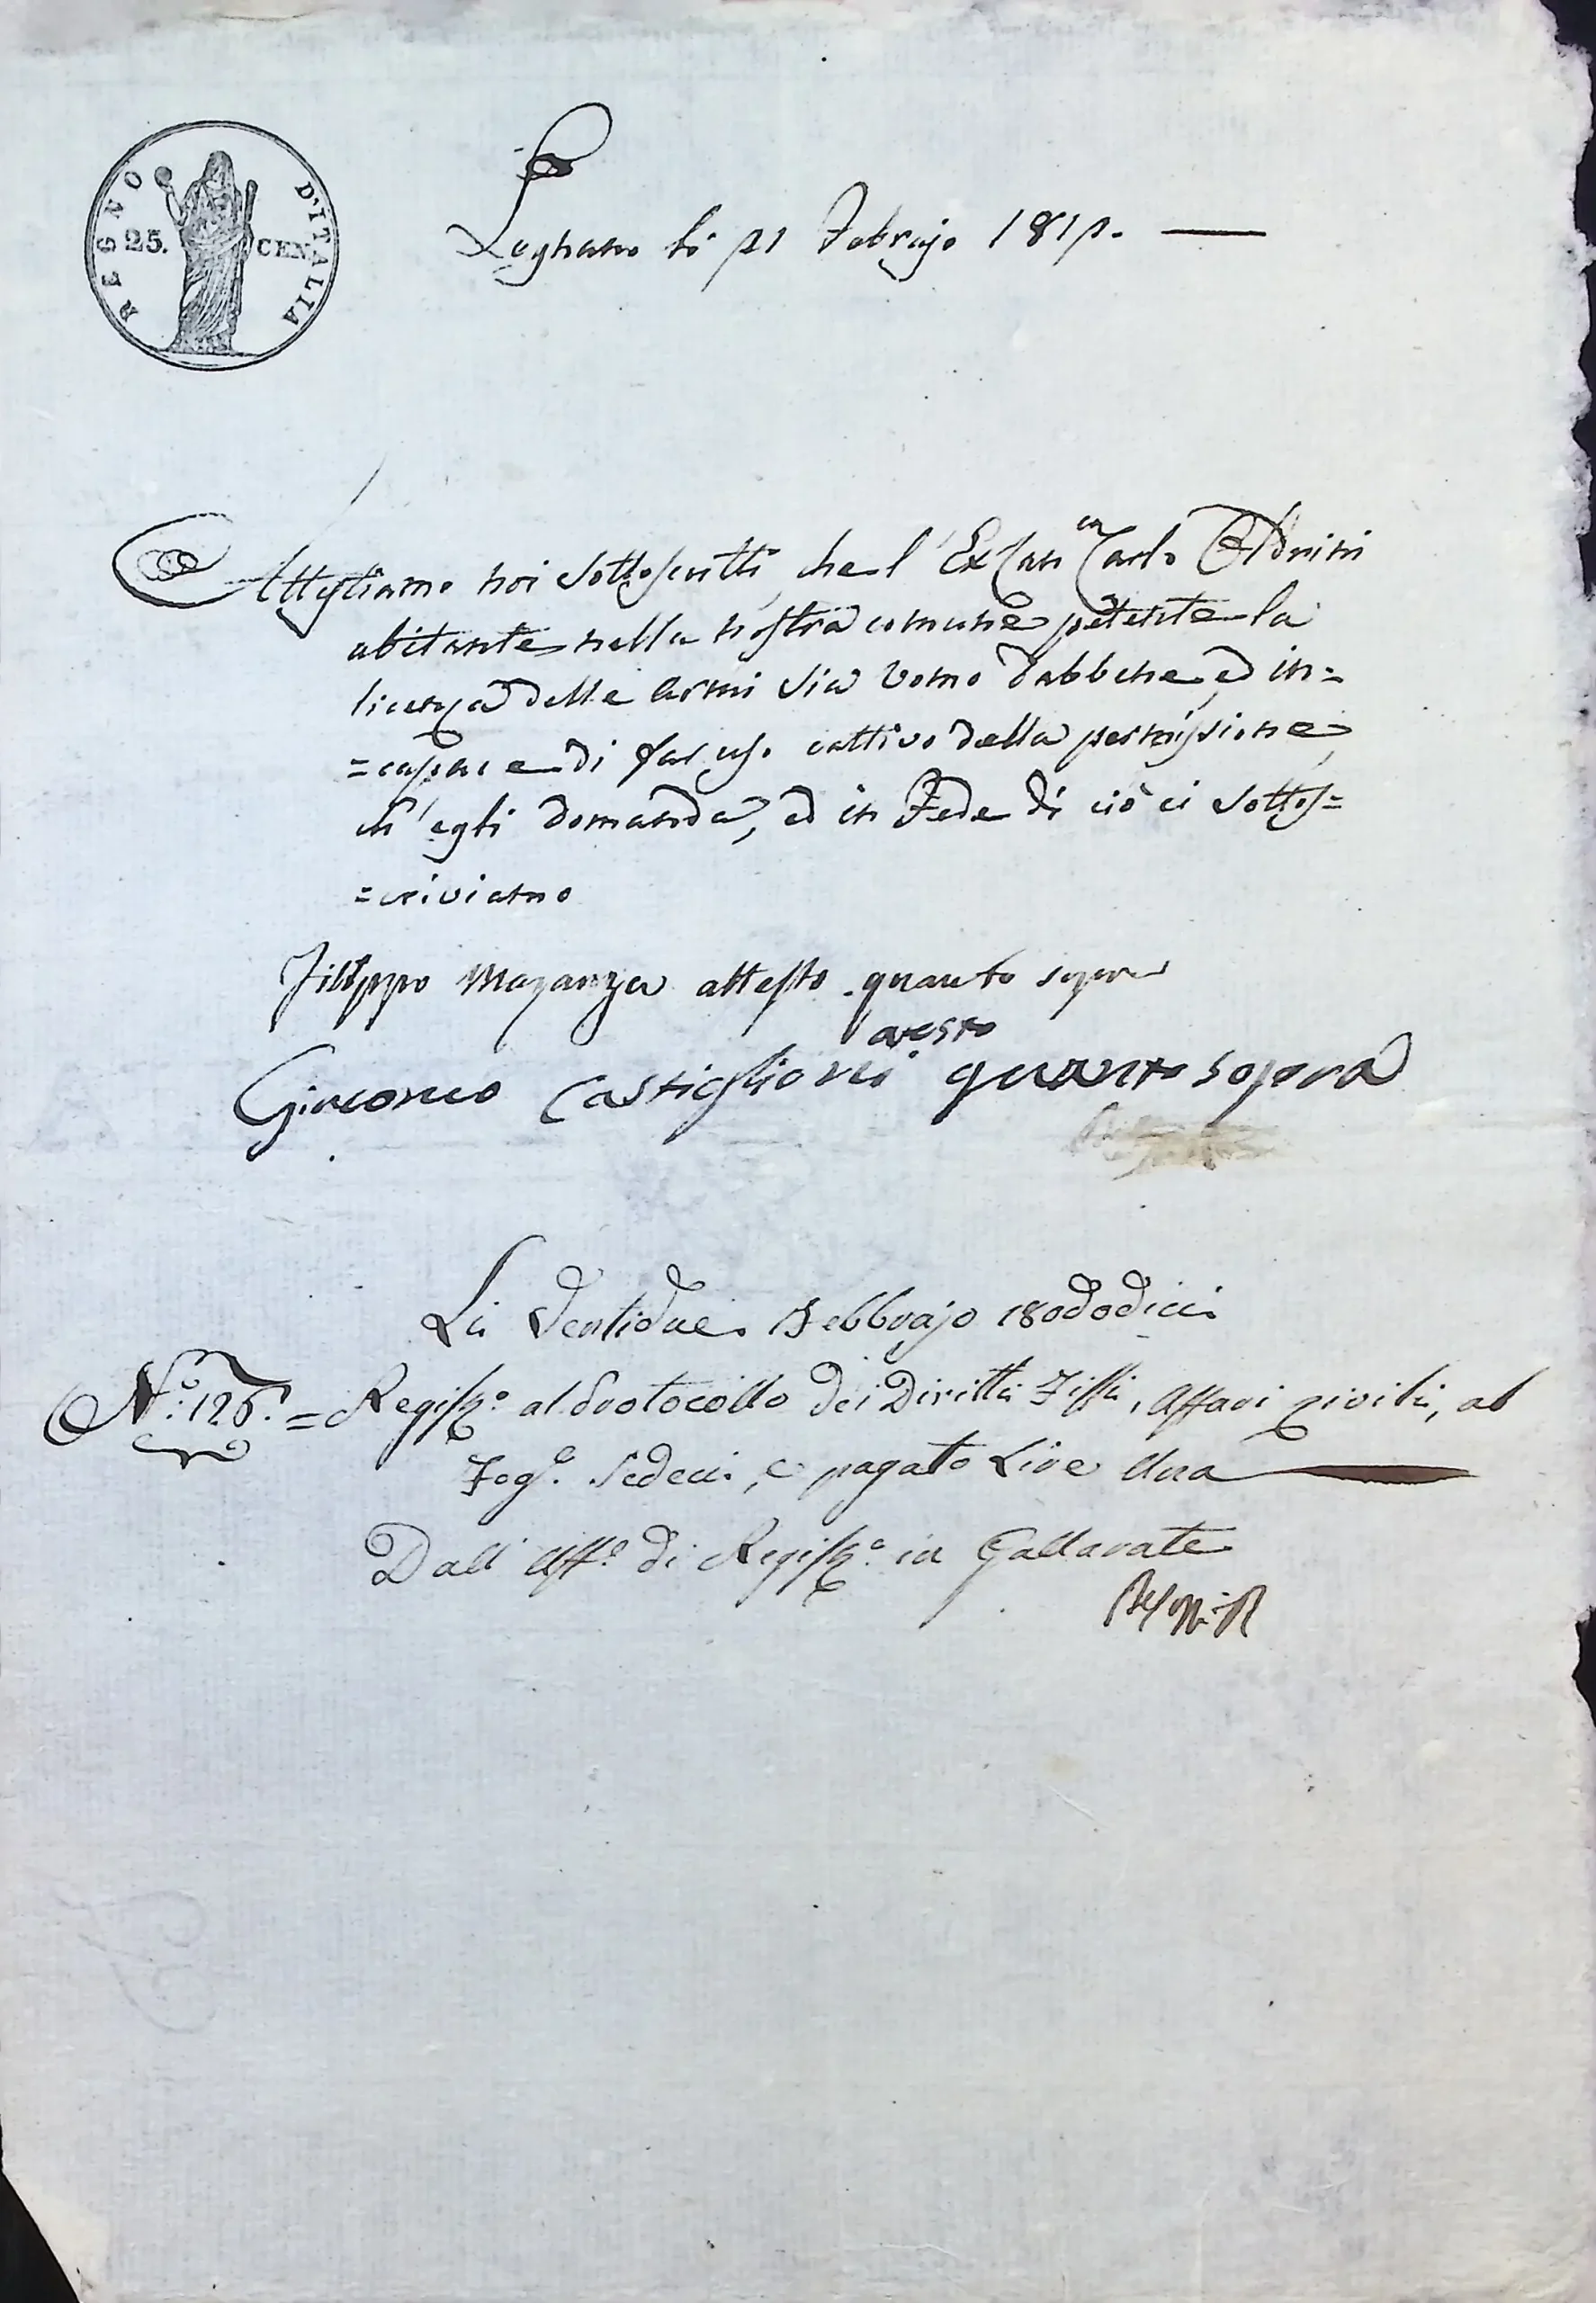 REGNO D'ITALIA
25. CEN.
Legnano li 21 Febrajo 1812.
Attestiamo noi sottoscritti, che l' Ex Can.co Carlo Oldrini
abitante nella nostra comune petente la
licenza delle Armi sia Uomo dabbene, ed in=
=capace di far uso cattivo della permissione,
ch' egli domanda, ed in Fede di ciò ci sottos=
=criviamo
Filippo Mazanza attesto quanto sopra
atesto
Giacomo Castiglioni quanto sopra
Li Ventidue Febbrajo 180dodici
N.o: 126. = Regist.o al Protocollo dei Diritti Fissi, Affari Civili, al
Fog.o Sedeci, e pagato Lire Una
Dall' Uff.o di Regist.o in Gallarate